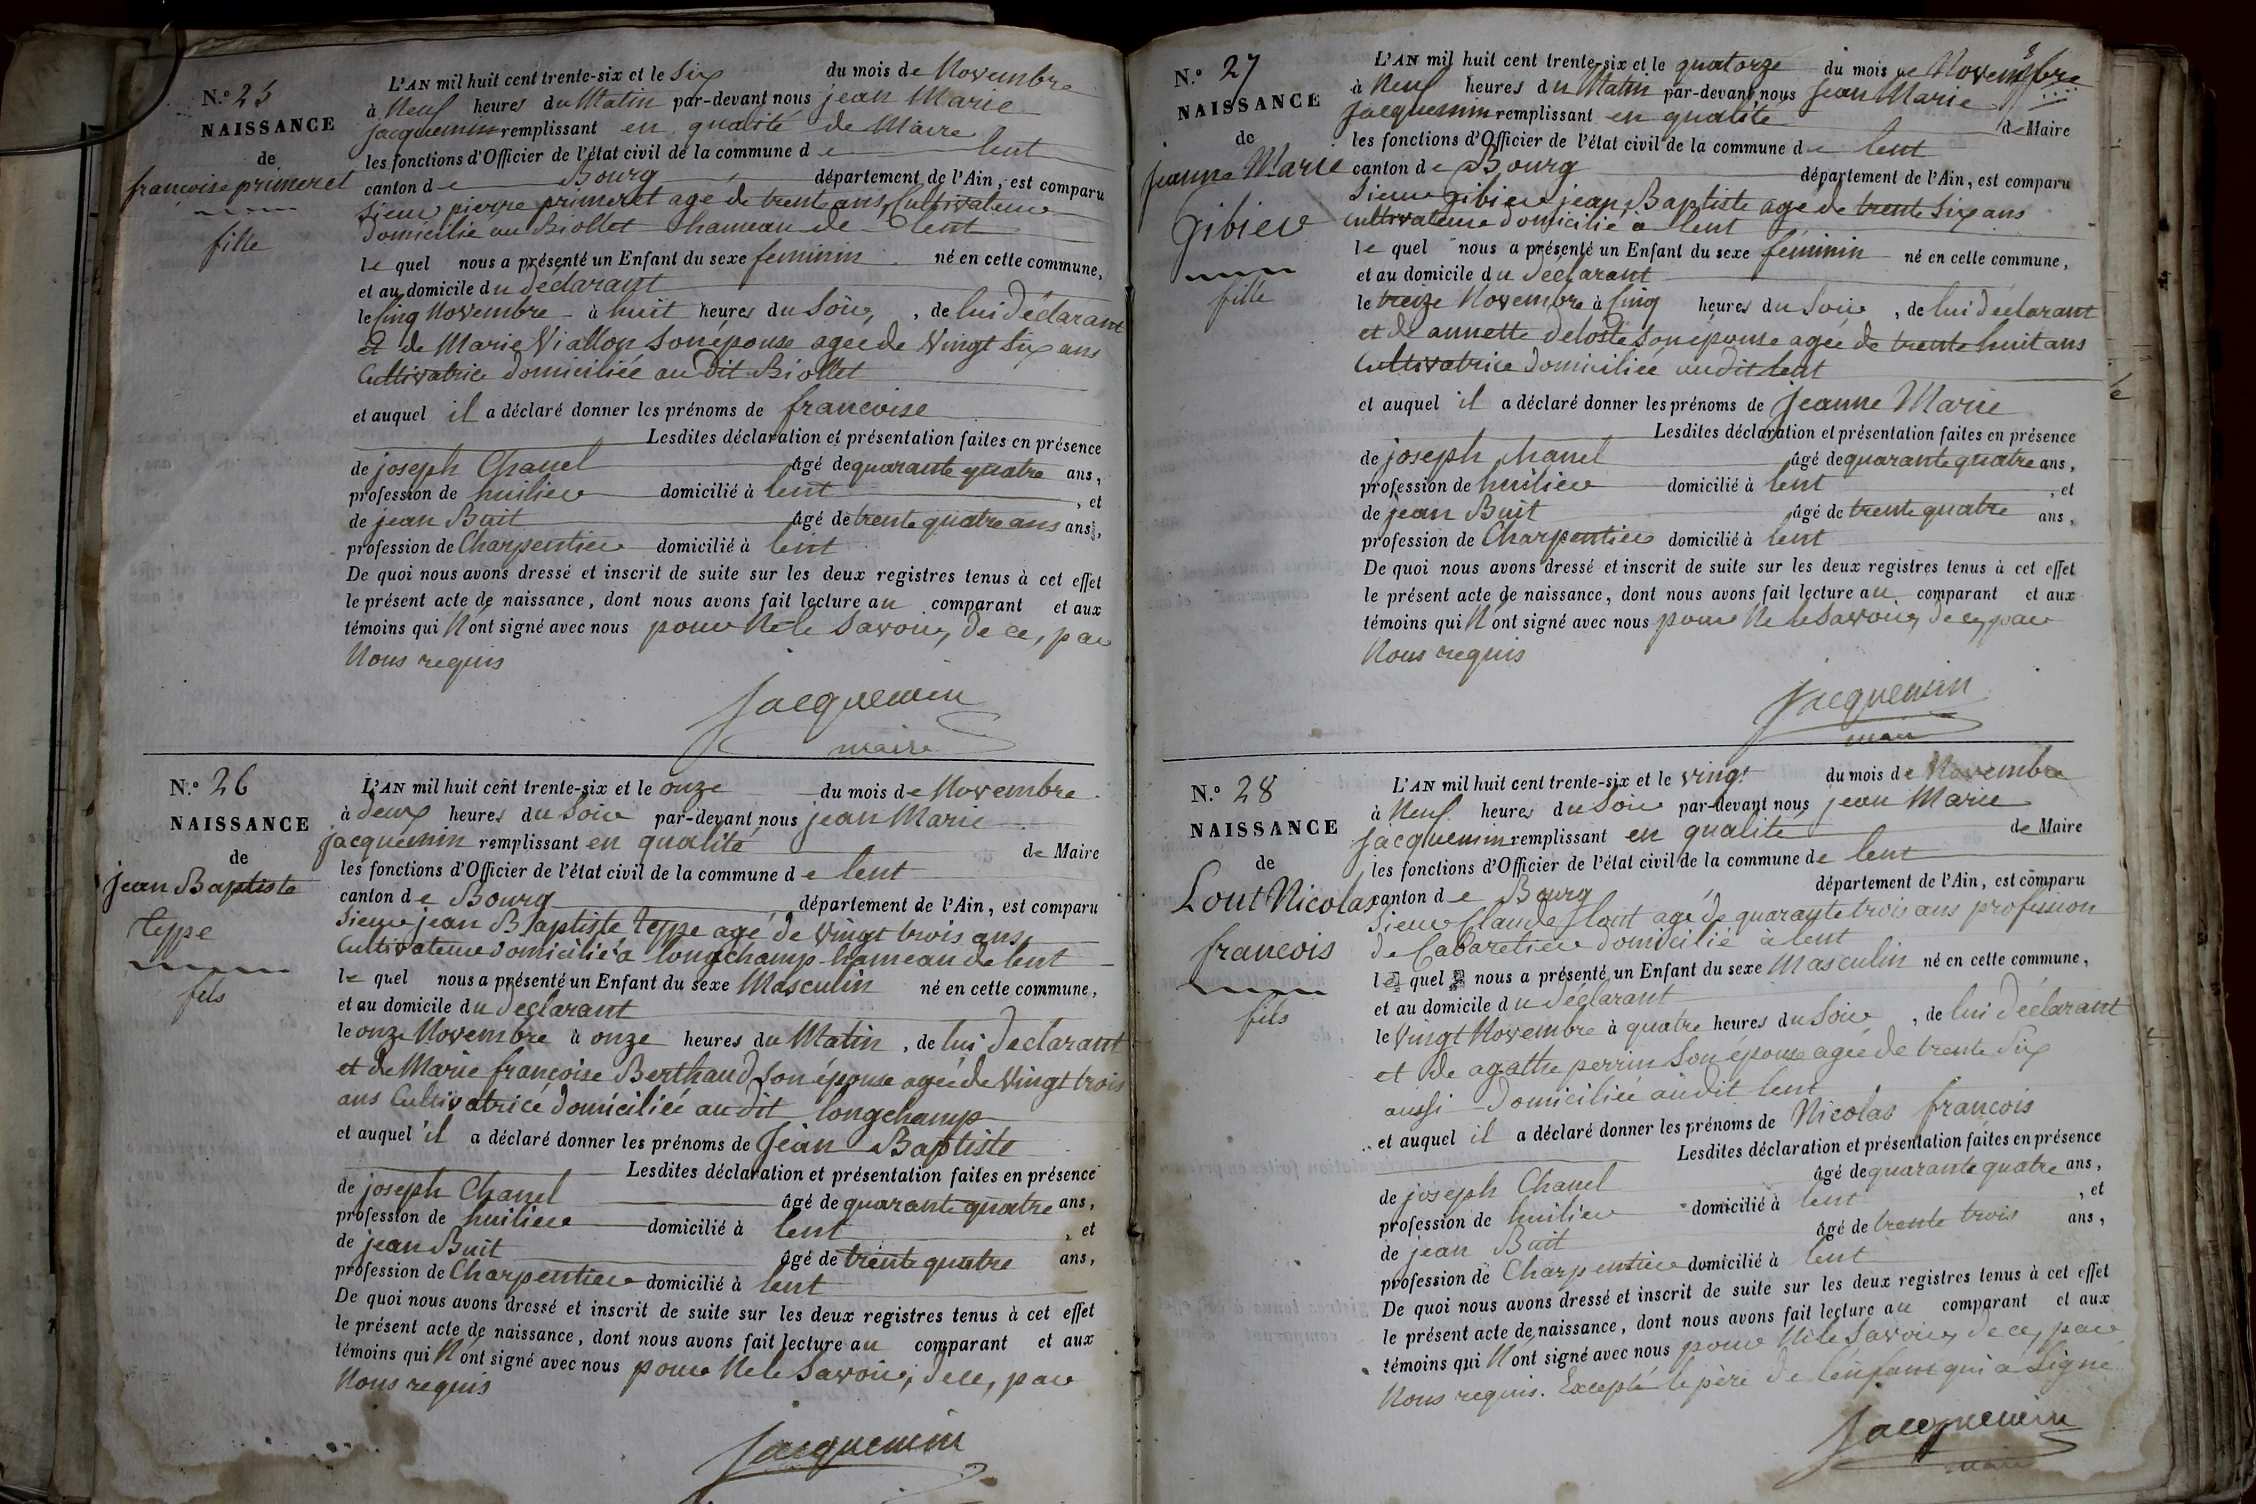 N.º 25
NAISSANCE
de
françoise primeret
fille
L'AN mil huit cent trente-six et le Six du mois de Novembre
à Neuf heures du Matin par-devant nous jean Marie
jacquemin remplissant en qualité de Maire
les fonctions d'Officier de l'état civil de la commune de lent
canton de Bourg département de l'Ain, est comparu
Sieur pierre primeret agé de trente ans, Cultivateur
Domicilié au Biollet hameau de lent
le quel nous a présenté un Enfant du sexe feminin né en cette commune,
et au domicile du Déclarant
le Cinq Novembre à huit heures du Soir, , de lui Déclarant
et de Marie Viallon Son épouse agée de Vingt Six ans
Cultivatrice Domiciliée au Dit Biollet
et auquel il a déclaré donner les prénoms de françoise
Lesdites déclaration et présentation faites en présence
de joseph Chanel âgé de quarante quatre ans,
profession de huilier domicilié à lent , et
de jean Buit âgé de trente quatre ans ans,
profession de Charpentier domicilié à lent
De quoi nous avons dressé et inscrit de suite sur les deux registres tenus à cet effet
le présent acte de naissance, dont nous avons fait lecture au comparant et aux
témoins qui N'ont signé avec nous pour Ne le Savoir, De ce, par
Nous requis
Jacquemin
maire
N.º 26
NAISSANCE
de
jean Baptiste
teppe
fils
L'AN mil huit cent trente-six et le onze du mois de Novembre
à deux heures du Soir par-devant nous jean Marie
jacquemin remplissant en qualité de Maire
les fonctions d'Officier de l'état civil de la commune de lent
canton de Bourg département de l'Ain, est comparu
Sieur jean Baptiste teppe agé de Vingt trois ans,
Cultivateur Domicilié à longchamp hameau de lent
le quel nous a présenté un Enfant du sexe Masculin né en cette commune,
et au domicile du Déclarant
le onze Novembre à onze heures du Matin , de lui Déclarant
et de Marie françoise Berthaud Son épouse agée de Vingt trois
ans Cultivatrice Domiciliée au dit longchamp
et auquel il a déclaré donner les prénoms de Jean Baptiste
Lesdites déclaration et présentation faites en présence
de joseph Chanel âgé de quarante quatre ans,
profession de huilier domicilié à lent , et
de jean Buit âgé de trente quatre ans,
profession de Charpentier domicilié à lent
De quoi nous avons dressé et inscrit de suite sur les deux registres tenus à cet effet
le présent acte de naissance, dont nous avons fait lecture au comparant et aux
témoins qui N'ont signé avec nous pour Ne le Savoir, De ce, par
Nous requis
Jacquemin
N.º 27
NAISSANCE
de
jeanne Marie
Gibier
fille
L'AN mil huit cent trente-six et le quatorze du mois de Novembre
à Neuf heures du Matin par-devant nous jean Marie
Jacquemin remplissant en qualité de Maire
les fonctions d'Officier de l'état civil de la commune de lent
canton de Bourg département de l'Ain, est comparu
Sieur Gibier jean Baptiste agé de trente Six ans
Cultivateur Domicilié à lent
le quel nous a présenté un Enfant du sexe féminin né en cette commune,
et au domicile du Déclarant
le treize Novembre à Cinq heures du Soir , de lui Déclarant
et de annette Deloste Son épouse agée de trente huit ans
Cultivatrice Domiciliée audit lent
et auquel il a déclaré donner les prénoms de Jeanne Marie
Lesdites déclaration et présentation faites en présence
de joseph Chanel âgé de quarante quatre ans,
profession de huilier domicilié à lent , et
de jean Buit âgé de trente quatre ans,
profession de Charpentier domicilié à lent
De quoi nous avons dressé et inscrit de suite sur les deux registres tenus à cet effet
le présent acte de naissance, dont nous avons fait lecture au comparant et aux
témoins qui N'ont signé avec nous pour Ne le Savoir, De ce, par
Nous requis
Jacquemin
maire
N.º 28
NAISSANCE
de
Lout Nicolas
francois
fils
L'AN mil huit cent trente-six et le vingt du mois de Novembre
à Neuf heures du Soir par-devant nous jean Marie
Jacquemin remplissant en qualité de Maire
les fonctions d'Officier de l'état civil de la commune de lent
canton de Bourg département de l'Ain, est comparu
Sieur Claude Lout agé de quarante trois ans profession
de Cabaretier Domicilié à lent
le quel nous a présenté un Enfant du sexe Masculin né en cette commune,
et au domicile du Déclarant
le Vingt Novembre à quatre heures du Soir , de lui Déclarant
et de agathe perrin Son épouse agée de trente Six
aussi Domiciliée audit lent
et auquel il a déclaré donner les prénoms de Nicolas francois
Lesdites déclaration et présentation faites en présence
de joseph Chanel âgé de quarante quatre ans,
profession de huilier domicilié à lent , et
de jean Buit âgé de trente trois ans,
profession de Charpentier domicilié à lent
De quoi nous avons dressé et inscrit de suite sur les deux registres tenus à cet effet
le présent acte de naissance, dont nous avons fait lecture au comparant et aux
témoins qui N'ont signé avec nous pour Ne le Savoir, De ce, par
Nous requis. Excepté le père De l'enfant qui a Signé
Jacquemin
maire